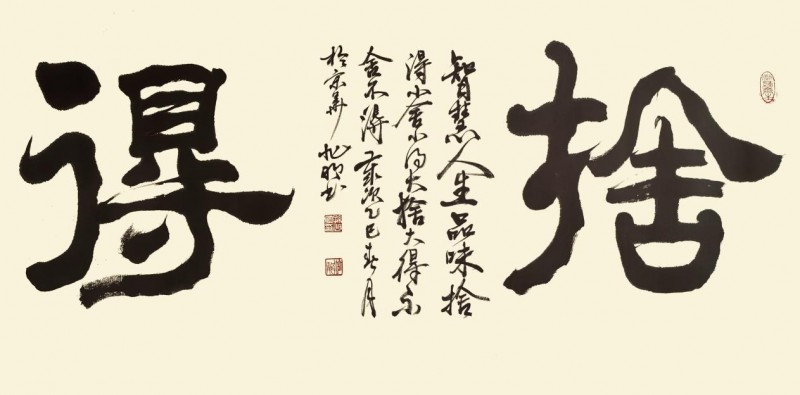 捨
智慧人生品味捨
得小舍小得大捨大得不
舍不得 歲次乙巳春月
於京華
得